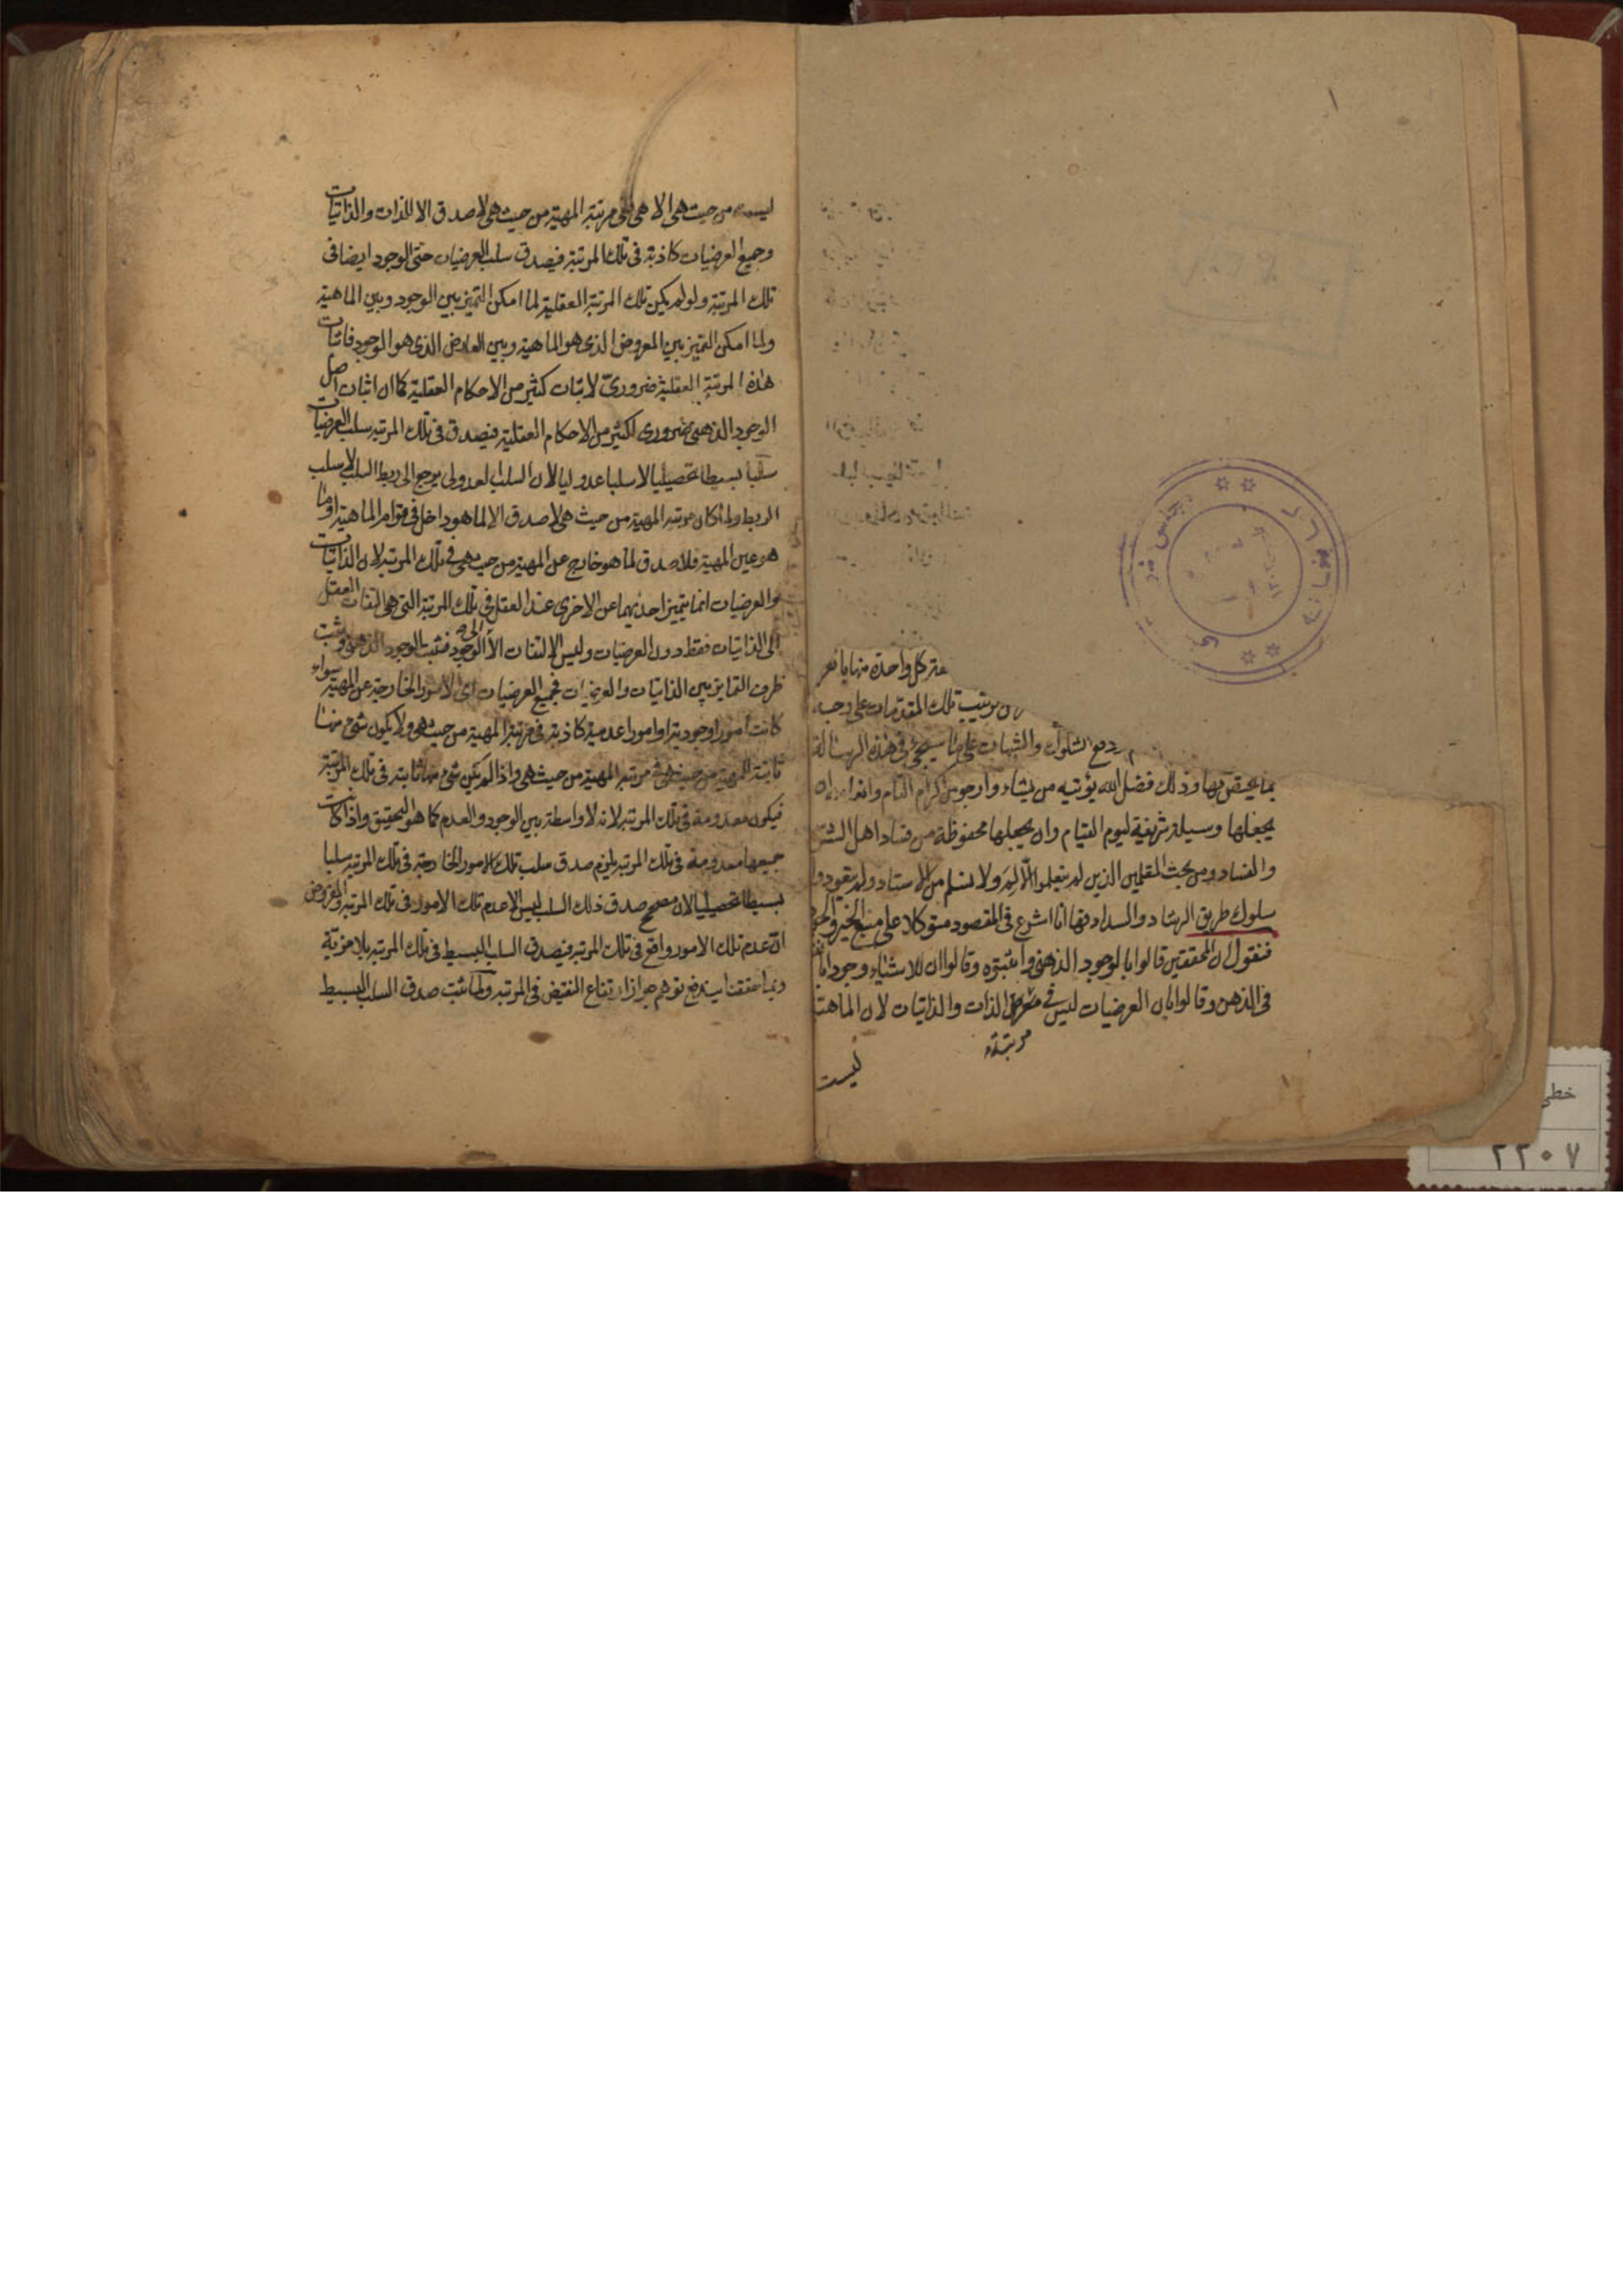 كل واحدة منها
ترتيب تلك المقدمات على وجه
دفع الشكوك والشبهات على ما سيجئ في هذه الرسالة
بما يختص بها وذلك فضل الله يؤتيه من يشاء وارجو من كرام
يجعلها وسيلة شريفة ليوم القيام وان يجعلها محفوظة من فساد اهل الشر
والفساد ومن بحث المقلدين الذين لم يتعلموا ولا من الاستاد ولم
سلوك طريق الرشاد والسداد فها انا اشرع في المقصود متوكلا على منبع الخير
فنقول ان المحققين قالوا بالوجود الذهني واثبتوه وقالوا ان للاشياء وجودا
في الذهن وقالوا بان العرضيات ليس في مرتبة الذات والذاتيات لان الماهية
ليست
ليست من حيث هي الا هي ففي مرتبة المهية من حيث هي لا صدق الا للذات والذاتيات
وجميع العرضيات كاذبة في تلك المرتبة فيصدق سلب العرضيات حتى الوجود ايضا في
تلك المرتبة ولو لم يكن تلك المرتبة العقلية لما امكن التميز بين الوجود وبين الماهية
ولما امكن التميز بين المعروض الذي هو الماهية وبين العارض الذي هو الوجود فاثبات
هذه المرتبة العقلية ضروري لاثبات كثير من الاحكام العقلية كما ان اثبات اصل
الوجود الذهني ضروري لكثير من الاحكام العقلية فيصدق في تلك المرتبه سلب العرضيات
سلبا بسيطا تحصيليا لا سلبا عدوليا لان السلب العدولي يرجع الى ربط السلب لا سلب
الربط ولما كان مرتبه المهية من حيث هي لا صدق الا لما هو داخل في قوام الماهية او ما
هو عين المهية فلا صدق لما هو خارج عن المهية من حيث هي في تلك المرتبه لان الذاتيات
والعرضيات انما يتميز احديهما عن الاخرى عند العقل في تلك المرتبة التي هي التفات العقل
الى الذاتيات فقط دون العرضيات وليس الالتفات الا الى الوجود فثبت الوجود الذهني وثبت
ظرف التمايز بين الذاتيات والعرضيات فجميع العرضيات اي الامور الخارجة عن المهية سواء
كانت امورا وجودية او امورا عدمية كاذبة في مرتبة المهية من حيث هي ولا يكون شئ منها
ثابتة للمهية من حيث هي في مرتبه المهية من حيث هي واذا لم يكن شئ منها ثابته في تلك المرتبة
فيكون معدومة في تلك المرتبه لانه لا واسطة بين الوجود والعدم كما هو التحقيق واذا كانت
جميعها معدومة في تلك المرتبه يلزم صدق سلب تلك الامور الخارجة في تلك المرتبه سلبا
بسيطا تحصيليا لان مصحح صدق ذلك السلب ليس الا عدم تلك الامور في تلك المرتبه والمفروض
ان عدم تلك الامور واقع في تلك المرتبه فيصدق السلب البسيط في تلك المرتبه بلا مزية
وبما حققنا يندفع توهم جواز ارتفاع النقيض في المرتبه ولما ثبت صدق السلب البسيط
خطي
٢٢٠٧